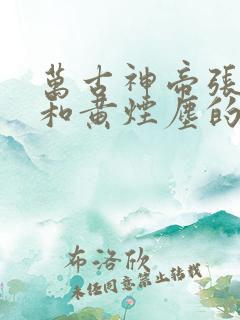 萬古神帝張
和黄煙塵的
布洛欣
未经同意禁止转载